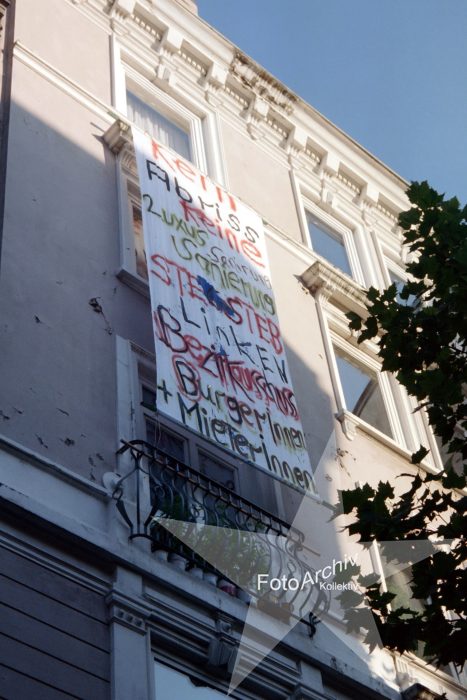 Kein
Abriss
Keine
Luxus
Sanierung
STEG STEB
LINKEN
Bezirkausschuss
BürgerInnen
+ MieterInnen
FotoArchiv
Kollektiv